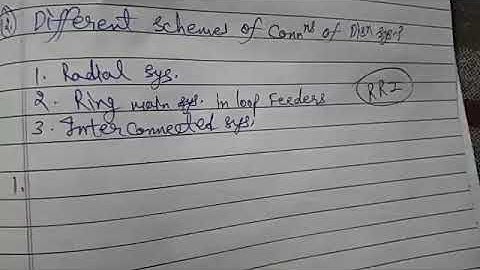 2) Different schemes of Connns of Disn sys?
1. Radial sys.
2. Ring main sys. In loop Feeders
RRI
3. Interconnected sys.
1.